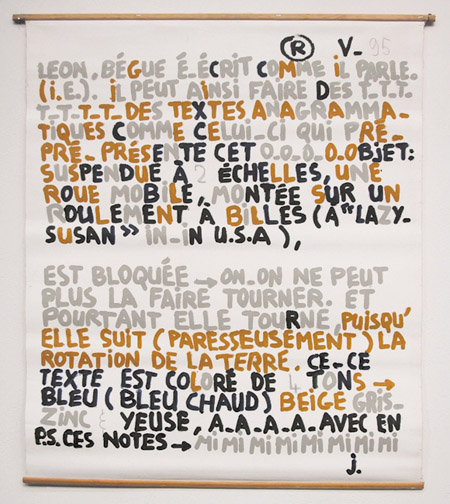 Ⓡ V_ 95
LEON, BÉGUE É_ÉCRIT COMME iL PARLE.
(i.E.). iL PEUT AiNSi FAIRE DES T_T_T_
T_T_T_T_DES TEXTES ANAGRAMMA_
TiQUES COMME CELUi_Ci QUi PRÉ_
PRÉ_PRÉSENTE CET O_O_O_O_OBJET:
SUSPENDUE À 2 ÉCHELLES, UNE
ROUE MOBiLE, MONTÉE SUR UN
ROULEMENT À BiLLES (A "LAZY_
SUSAN" iN_iN U.S.A),
EST BLOQUÉE → ON_ON NE PEUT
PLUS LA FAIRE TOURNER. ET
POURTANT ELLE TOURNE, PUiSQU'
ELLE SUiT (PARESSEUSEMENT) LA
ROTATiON DE LA TERRE. CE_CE
TEXTE EST COLORÉ DE 4 TONS →
BLEU (BLEU CHAUD) BEIGE GRiS_
ZiNC & YEUSE, A_A_A_A_AVEC EN
P.S. CES NOTES → Mi Mi Mi Mi Mi Mi Mi Mi
j.